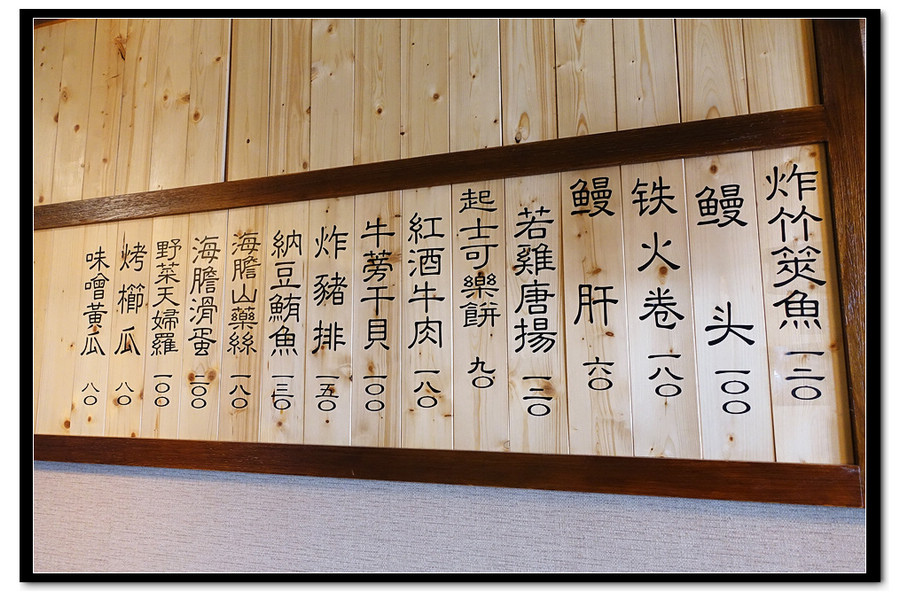 炸竹筴魚 一二〇
鰻头 一〇〇
铁火卷 一八〇
鰻肝 六〇
若雞唐揚 一二〇
起士可樂餅 九〇
紅酒牛肉 一八〇
牛蒡干貝 一〇〇
炸豬排 一五〇
納豆鮪魚 一三〇
海膽山藥絲 一八〇
海膽滑蛋 二〇〇
野菜天婦羅 一〇〇
烤櫛瓜 八〇
味噌黃瓜 八〇